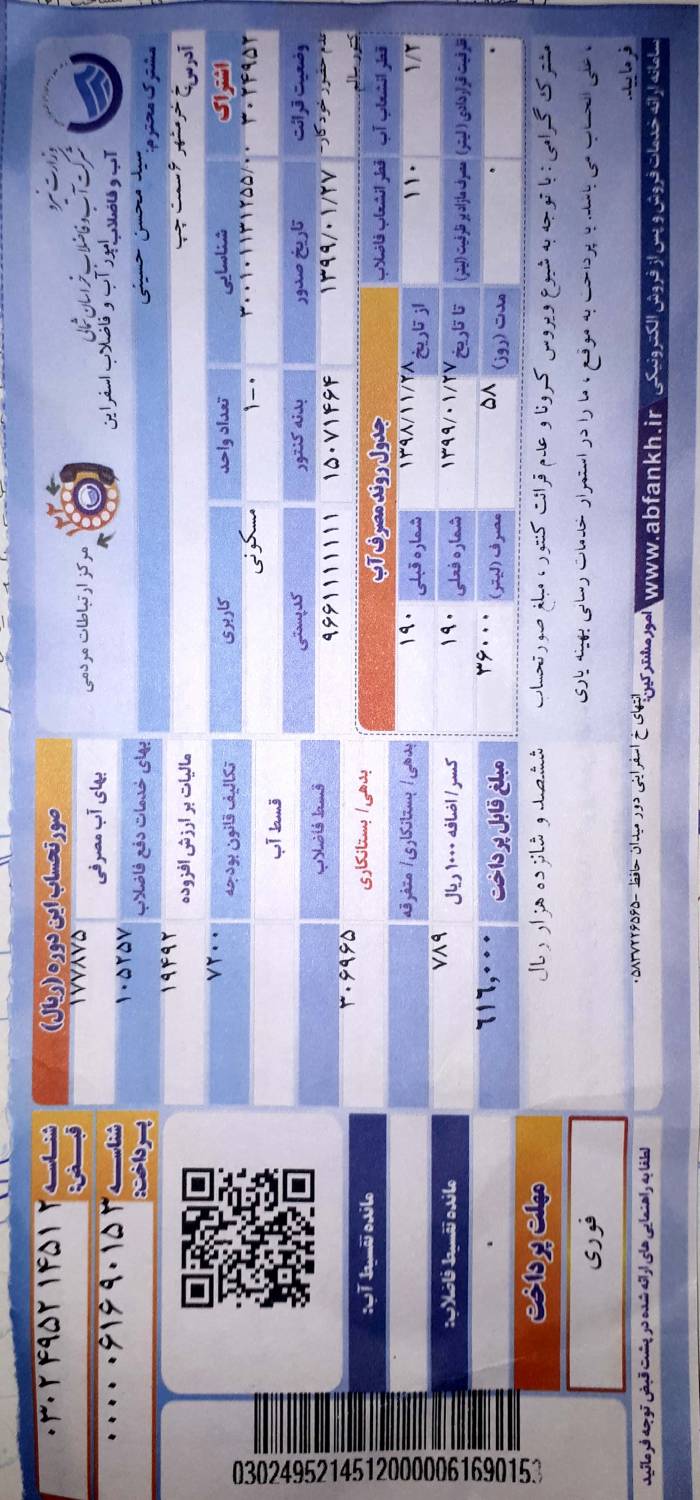 وزارت نیرو
شرکت آب و فاضلاب خراسان شمالی
آب و فاضلاب
امور آب و فاضلاب اسفراین
مرکز ارتباطات مردمی
۱۲۲
مشترک محترم: سید محسن حسینی
آدرس: خ خرمشهر ۶ سمت چپ
اشتراک شناسایی تعداد واحد کاربری
۳۰۲۴۹۵۲ ۳۰۰۱۰۱۱۳۱۲۵۵/۰۰ ۱-۰ مسکونی
وضعیت قرائت تاریخ صدور بدنه کنتور کدپستی
عدم حضور خودکار ۱۳۹۹/۰۱/۲۷ ۱۵۰۷۱۴۶۴ ۹۶۶۱۱۱۱۱۱۱
کنتور سالم
جدول روند مصرف آب
قطر انشعاب آب قطر انشعاب فاضلاب از تاریخ ۱۳۹۸/۱۱/۲۸ شماره قبلی ۱۹۰
۱/۲ ۱۱۰ تا تاریخ ۱۳۹۹/۰۱/۲۷ شماره فعلی ۱۹۰
ظرفیت قراردادی (لیتر) مصرف مازاد بر ظرفیت (لیتر) مدت (روز) ۵۸ مصرف (لیتر) ۳۶۰۰۰
۰ ۰
مشترک گرامی : با توجه به شیوع ویروس کرونا و عدم قرائت کنتور ، مبلغ صورتحساب
، علی الحساب می باشد. با پرداخت به موقع ، ما را در استمرار خدمات رسانی بهینه یاری
فرمایید.
سامانه ارائه خدمات فروش و پس از فروش الکترونیکی www.abfankh.ir
امور مشترکین: انتهای خ اسفراینی دور میدان حافظ -۰۵۸۳۷۲۲۶۵۶۵
صورتحساب این دوره (ریال)
بهای آب مصرفی ۱۷۷۸۷۵
بهای خدمات دفع فاضلاب ۱۰۵۲۵۷
مالیات بر ارزش افزوده ۱۹۴۹۲
تکالیف قانون بودجه ۷۲۰۰
قسط آب
قسط فاضلاب
بدهی/ بستانکاری ۳۰۶۹۶۵
بدهی/ بستانکاری/ متفرقه
کسر/ اضافه ۱۰۰۰ ریال ۷۸۹
مبلغ قابل پرداخت ۶۱۶,۰۰۰
ششصد و شانزده هزار ریال
شناسه قبض: ۰۳۰۲۴۹۵۲۱۴۵۱۲
شناسه پرداخت: ۰۰۰۰۰۶۱۶۹۰۱۵۳
مانده تقسیط آب:
مانده تقسیط فاضلاب:
۰
مهلت پرداخت
فوری
لطفا به راهنمایی های ارائه شده در پشت قبض توجه فرمائید
03024952145120000061690153